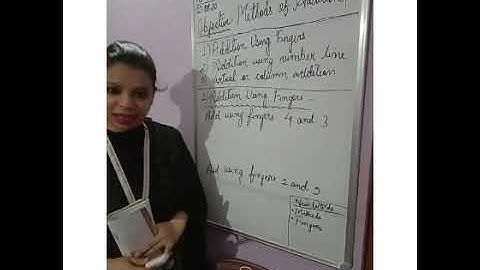 Objective Methods of
1) Addition Using Fingers
2) Addition using number line
3) Vertical or column addition
Addition Using Fingers -
Add using fingers 4 and 3
Add using fingers 2 and 5
New Words
Methods
Fingers